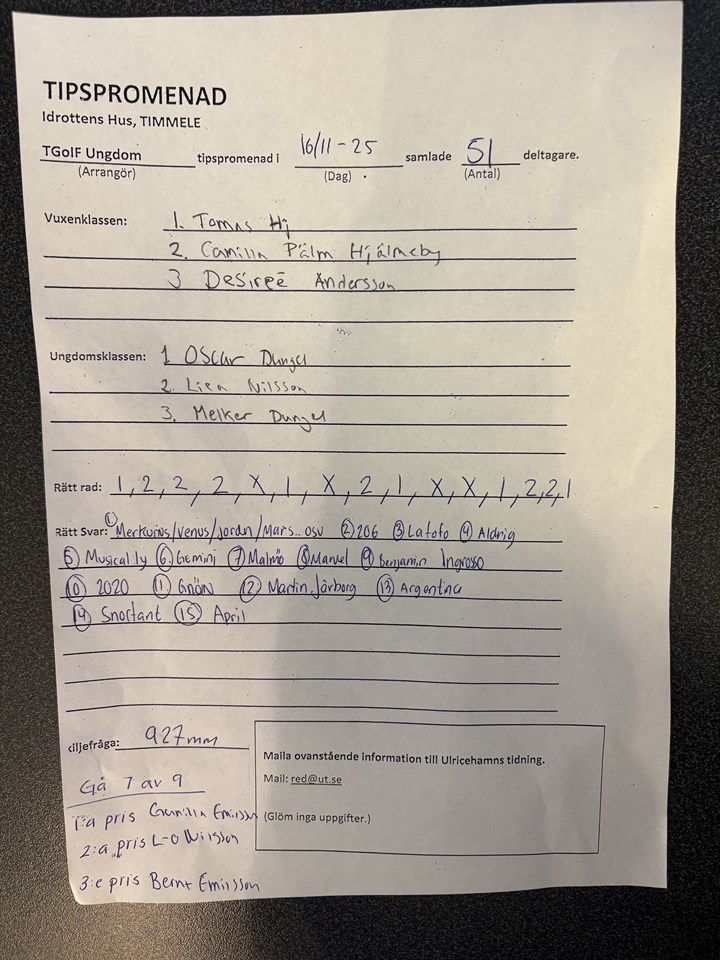 TIPSPROMENAD
Idrottens Hus, TIMMELE
TGoIF Ungdom tipspromenad i 16/11-25 samlade 51 deltagare.
(Arrangör) (Dag) (Antal)
Vuxenklassen: 1. Tomas Hj
2. Camilla Pälm Hjälmeby
3 Desireé Andersson
Ungdomsklassen: 1 Oscar Dungel
2. Nilsson
3. Melker Dungel
Rätt rad: 1, 2, 2, 2, X, 1, X, 2, 1, X, X, 1, 2, 2, 1
Rätt Svar: ① Merkurius/Venus/Jorden/Mars.. osv ② 206 ③ Lafofo ④ Aldrig
⑤ Musical.ly ⑥ Gemini ⑦ Malmö ⑧ Manuel ⑨ Benjamin Ingrosso
⑩ 2020 ⑪ ⑫ Martin Järborg ⑬ Argentina
⑭ Snortant ⑮ April
kiljefråga: 927mm
Gå 7 av 9
1:a pris Gunilla Emilsson
2:a pris L-O Nilsson
3:e pris Bernt Emilsson
Maila ovanstående information till Ulricehamns tidning.
Mail: red@ut.se
(Glöm inga uppgifter.)